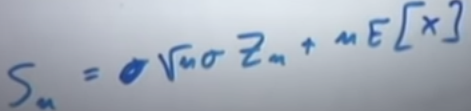 Sₙ = √nσ Zₙ + nE[X]